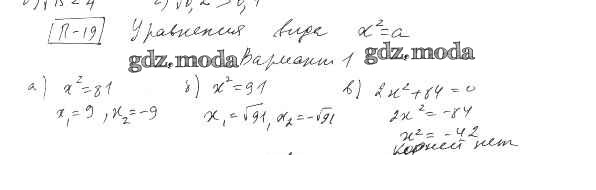 П-19 Уравнения вида x²=a
gdz.moda Вариант 1 gdz.moda
а) x²=81 б) x²=91 в) 2x²+84=0
x₁=9, x₂=-9 x₁=√91, x₂=-√91 2x²=-84
x²=-42
корней нет